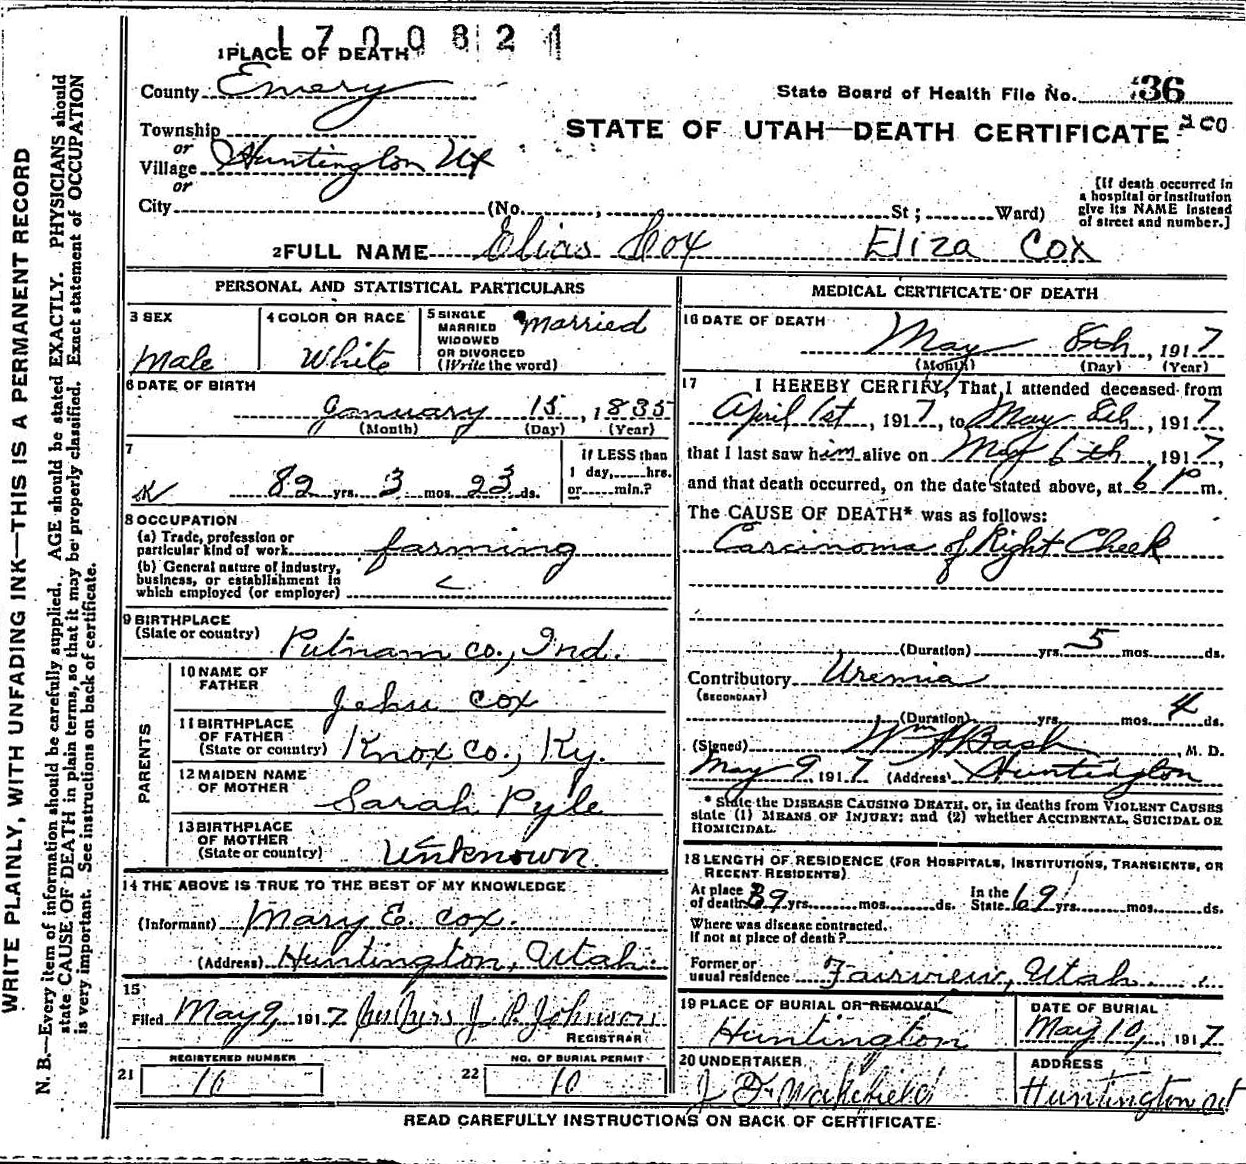 1700821
1 PLACE OF DEATH
County Emery
State Board of Health File No. 36
Township
STATE OF UTAH—DEATH CERTIFICATE 200
or
Village Huntington Ut
or
City (No. , St ; Ward)
[If death occurred in
a hospital or institution
give its NAME instead
of street and number.]
2 FULL NAME Elias Cox Eliza Cox
PERSONAL AND STATISTICAL PARTICULARS
3 SEX
Male
4 COLOR OR RACE
White
5 SINGLE
MARRIED
WIDOWED
OR DIVORCED
(Write the word)
Married
6 DATE OF BIRTH
January 15, 1835
(Month) (Day) (Year)
7
82 yrs. 3 mos. 23 ds.
if LESS than
1 day, hrs.
or min.?
8 OCCUPATION
(a) Trade, profession or
particular kind of work farming
(b) General nature of industry,
business, or establishment in
which employed (or employer)
9 BIRTHPLACE
(State or country) Putnam co., Ind.
PARENTS
10 NAME OF
FATHER Jehu Cox
11 BIRTHPLACE
OF FATHER
(State or country) Knox co., Ky.
12 MAIDEN NAME
OF MOTHER Sarah Pyle
13 BIRTHPLACE
OF MOTHER
(State or country) Unknown.
14 THE ABOVE IS TRUE TO THE BEST OF MY KNOWLEDGE
(Informant) Mary E. Cox.
(Address) Huntington, Utah.
15
Filed May 9, 1917 J. P. Johnson
REGISTRAR
REGISTERED NUMBER
21 10
NO. OF BURIAL PERMIT
22 10
MEDICAL CERTIFICATE OF DEATH
16 DATE OF DEATH
May 8th, 1917
(Month) (Day) (Year)
17 I HEREBY CERTIFY, That I attended deceased from
April 1st, 1917, to May 8th, 1917,
that I last saw him alive on May 6th, 1917,
and that death occurred, on the date stated above, at 6 P m.
The CAUSE OF DEATH* was as follows:
Carcinoma of Right Cheek
(Duration) yrs. 5 mos. ds.
Contributory Uremia
(SECONDARY)
(Duration) yrs. mos. 4 ds.
(Signed) Wm H Bash, M. D.
May 9 1917 (Address) Huntington
* State the DISEASE CAUSING DEATH, or, in deaths from VIOLENT CAUSES
state (1) MEANS OF INJURY; and (2) whether ACCIDENTAL, SUICIDAL OR
HOMICIDAL.
18 LENGTH OF RESIDENCE (FOR HOSPITALS, INSTITUTIONS, TRANSIENTS, OR
RECENT RESIDENTS)
At place
of death 39 yrs. mos. ds.
In the
State 69 yrs. mos. ds.
Where was disease contracted.
If not at place of death?
Former or
usual residence Fairview, Utah
19 PLACE OF BURIAL OR REMOVAL
Huntington
DATE OF BURIAL
May 10, 1917
20 UNDERTAKER
J F Wakefield
ADDRESS
Huntington Ut
READ CAREFULLY INSTRUCTIONS ON BACK OF CERTIFICATE
WRITE PLAINLY, WITH UNFADING INK—THIS IS A PERMANENT RECORD
N. B.—Every item of information should be carefully supplied. AGE should be stated EXACTLY. PHYSICIANS should
state CAUSE OF DEATH in plain terms, so that it may be properly classified. Exact statement of OCCUPATION
is very important. See instructions on back of certificate.